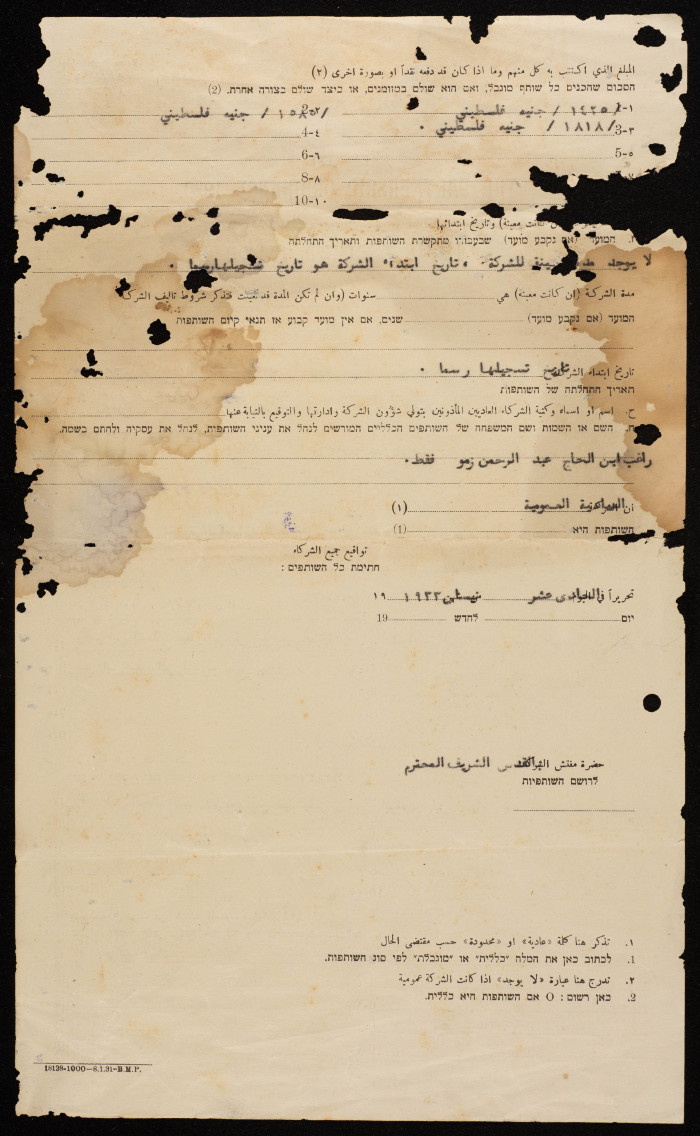 المبلغ الذي اكتتب به كل منهم وما اذا كان قد دفعه نقداً او بصورة اخرى (٢)
הסכום שהכניס כל שותף מוגבל, ואם הוא שולם במזומנים, או כיצד שולם בצורה אחרת. (2)
1-١ /١٤٢٥/ جنيه فلسطيني 2-٢ /١٥٨٠/ جنيه فلسطيني
3-٣ /١٨١٨/ جنيه فلسطيني .
4-٤
5-٥
6-٦
8-٨
10-١٠
كانت معينة) وتاريخ ابتدائها.
המועד (אם נקבע מועד) שבעבורו מתקשרת השותפות ותאריך התחלתה
لا يوجد معينة للشركة . وتاريخ ابتداء الشركة هو تاريخ تسجيلها رسميا .
مدة الشركة (ان كانت معينة) هي سنوات (وان لم تكن المدة قد تعينت فتذكر شروط تاليف الشركة
המועד (אם נקבע מועד) שנים, אם אין מועד קבוע אז תנאי קיום השותפות
تاريخ ابتداء الشركة تاريخ تسجيلها رسميا .
תאריך התחלתה של השותפות
ح. اسم او اسماء وكنية الشركاء العاديين المأذونين بتولي شؤون الشركة وادارتها والتوقيع بالنيابة عنها
ח. השם או השמות ושם המשפחה של השותפים הכלליים המורשים לנהל את עניני השותפות, לנהל את עסקיה ולחתם בשמה.
راغب ابن الحاج عبد الرحمن زمو فقط.
ان العمومية (١)
השותפות היא (1)
تواقيع جميع الشركاء
חתימת כל השותפים :
تحريراً في الحادى عشر نيسان ١٩٣٣ ١٩
יום לחדש 19
حضرة مفتش الشركات القدس الشريف المحترم
לרושם השותפיות
١. تذكر هنا كلمة «عادية» او «محدودة» حسب مقتضى الحال
1. לכתוב כאן את המלה "כללית" או "מוגבלת" לפי סוג השותפות.
٢. تدرج هنا عبارة «لا يوجد» اذا كانت الشركة عمومية
2. כאן רשום : O אם השותפות היא כללית.
18128-1000-8.1.31-B.M.P.